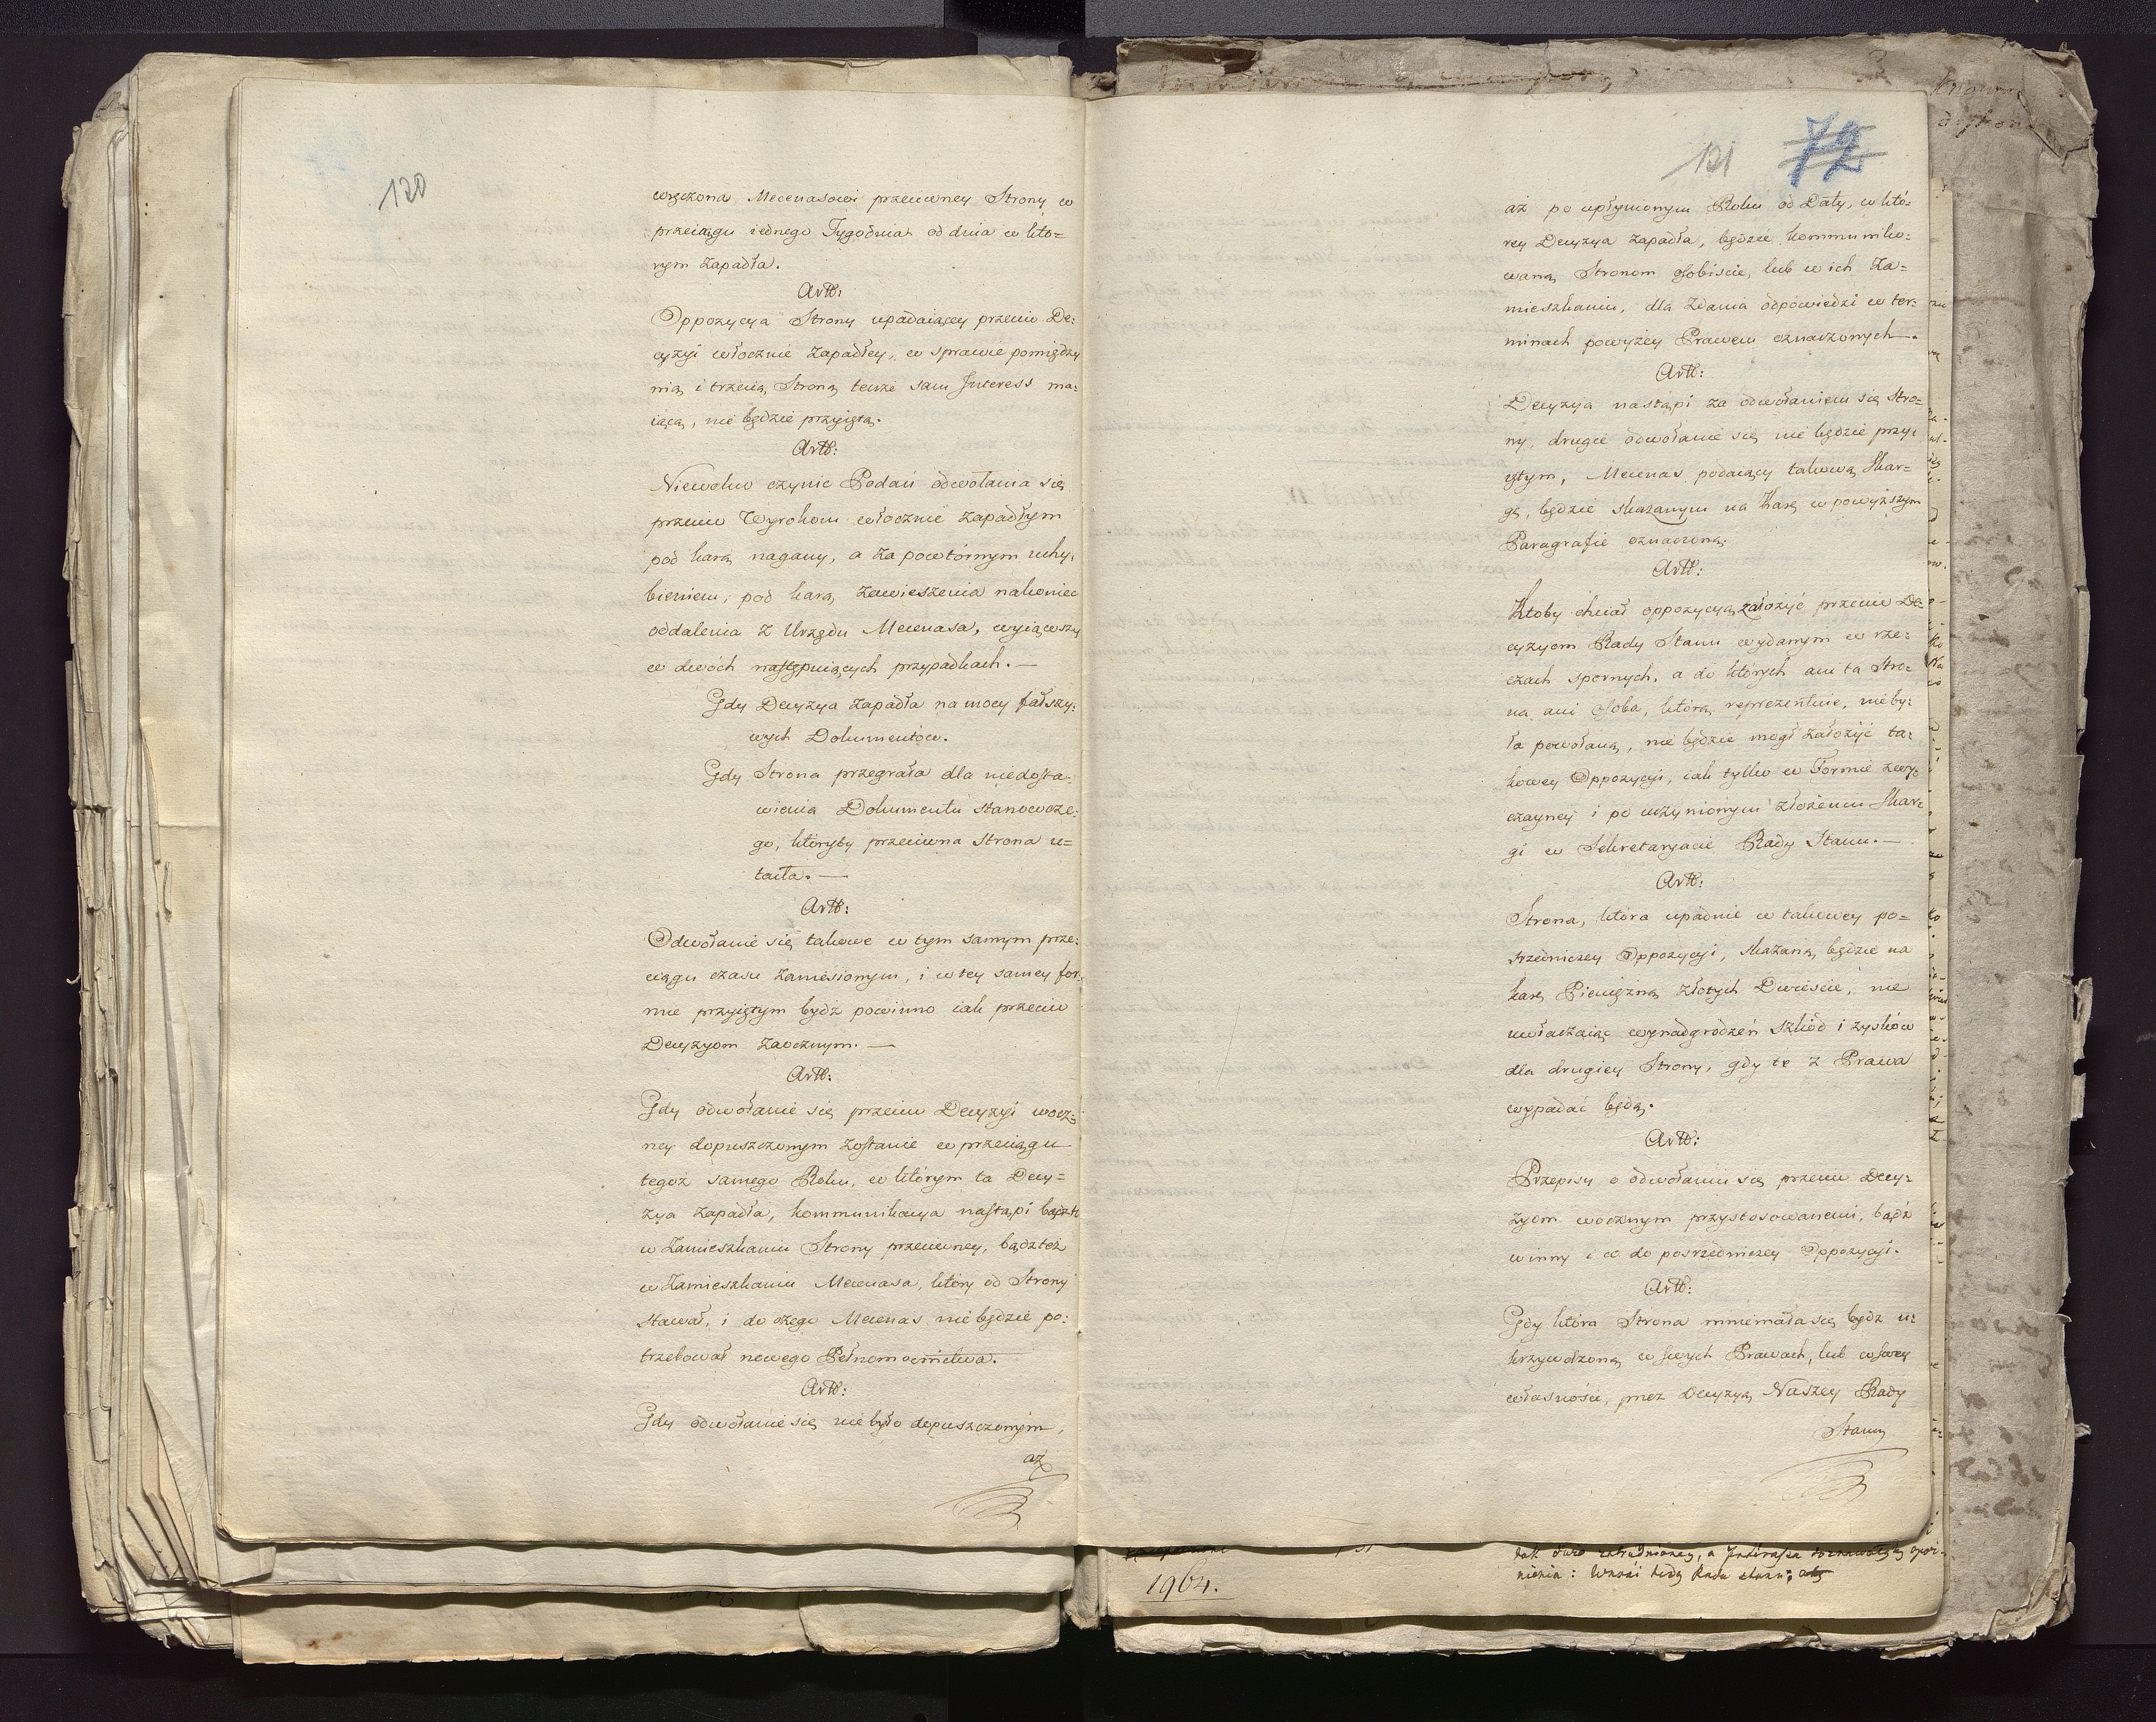 120
wręczona Mecenasowi przeciwney Strony w
przeciągu iednego Tygodnia od dnia w któ=
rym zapadła.
Artt:
Oppozycya Strony upadaiącey przeciw De:
cyzyi włocznie zapadłey, w sprawie pomiędzy
nią i trzecią Stroną tenże sam Interess ma:
iącą, nie będzie przyiętą.
Artt:
Niewolno czynić Podań odwołania się
przeciw Wyrokom włocznie zapadłym
pod karą nagany, a za powtórnym uchy:
bieniem, pod karą zawieszenia nakoniec
oddalenia z Urzędu Mecenasa, wyiąwszy
w dwóch następuiących przypadkach. —
Gdy Decyzya zapadła na mocy fałszy:
wych Dokumentów.
Gdy Strona przegrała dla niedosta:
wienia Dokumentu stanowcze:
go, któryby przeciwna Strona u=
taiła. —
Artt:
Odwołanie się takowe w tym samym prze:
ciągu czasu zaniesionym, i w tey samey for:
mie przyiętym bydź powinno iak przeciw
Decyzyom zaocznym. —
Artt:
Gdy odwołanie się przeciw Decyzyi wocz:
ney dopuszczonym zostanie w przeciągu
tegoż samego Roku, w którym ta Decy=
zya zapadła, kommunikacya nastąpi bądźto
w Zamieszkaniu Strony przeciwney, bądź też
w Zamieszkaniu Mecenasa, który od Strony
stawał, i do czego Mecenas nie będzie po:
trzebował nowego Pełnomocnictwa.
Artt:
Gdy odwołanie się nie było dopuszczonym,
aż
121 72
aż po upłynionym Roku od Daty, w któ:
rey Decyzya zapadła, będzie kommuniko:
waną Stronom osobiście, lub w ich Za=
mieszkaniu, dla zdania odpowiedzi w ter:
minach powyżey Prawem oznaczonych —.
Artt:
Decyzya nastąpi za odwołaniem się Stro=
ny, drugie odwołanie się nie będzie przy:
iętym, Mecenas podaiący takową Skar=
gę, będzie skazanym na Karę w powyższym
Paragrafie oznaczoną.
Artt:
Ktoby chciał oppozycyą założyć przeciw De:
cyzyom Rady Stanu wydanym w rze:
czach spornych, a do których ani ta Stro:
na ani Osoba, którą reprezentuie, nieby:
ła powołaną, nie będzie mogł założyć ta:
kowey Oppozycyi, iak tylko w Formie zwy:
czayney i po uczynionym złożeniu Skar:
gi w Sekretaryacie Rady Stanu. —
Artt:
Strona, która upadnie w takowey po=
srzedniczey Oppozycyi, skazaną będzie na
karę Pieniężną złotych Dwieście, nie
uwłaczaiąc wynadgrodzeń szkód i zysków
dla drugiey Strony, gdy te z Prawa
wypadać będą.
Artt:
Przepisy o odwołaniu się przeciw Decy:
zyom wocznym przystosowanemi, bądź
winny i co do posrzedniczey Oppozycyi.
Artt:
Gdy która Strona mniemała się bydz u:
krzywdzoną w swych Prawach, lub w swey
własności, przez Decyzyą Naszey Rady
Stanu
1964.